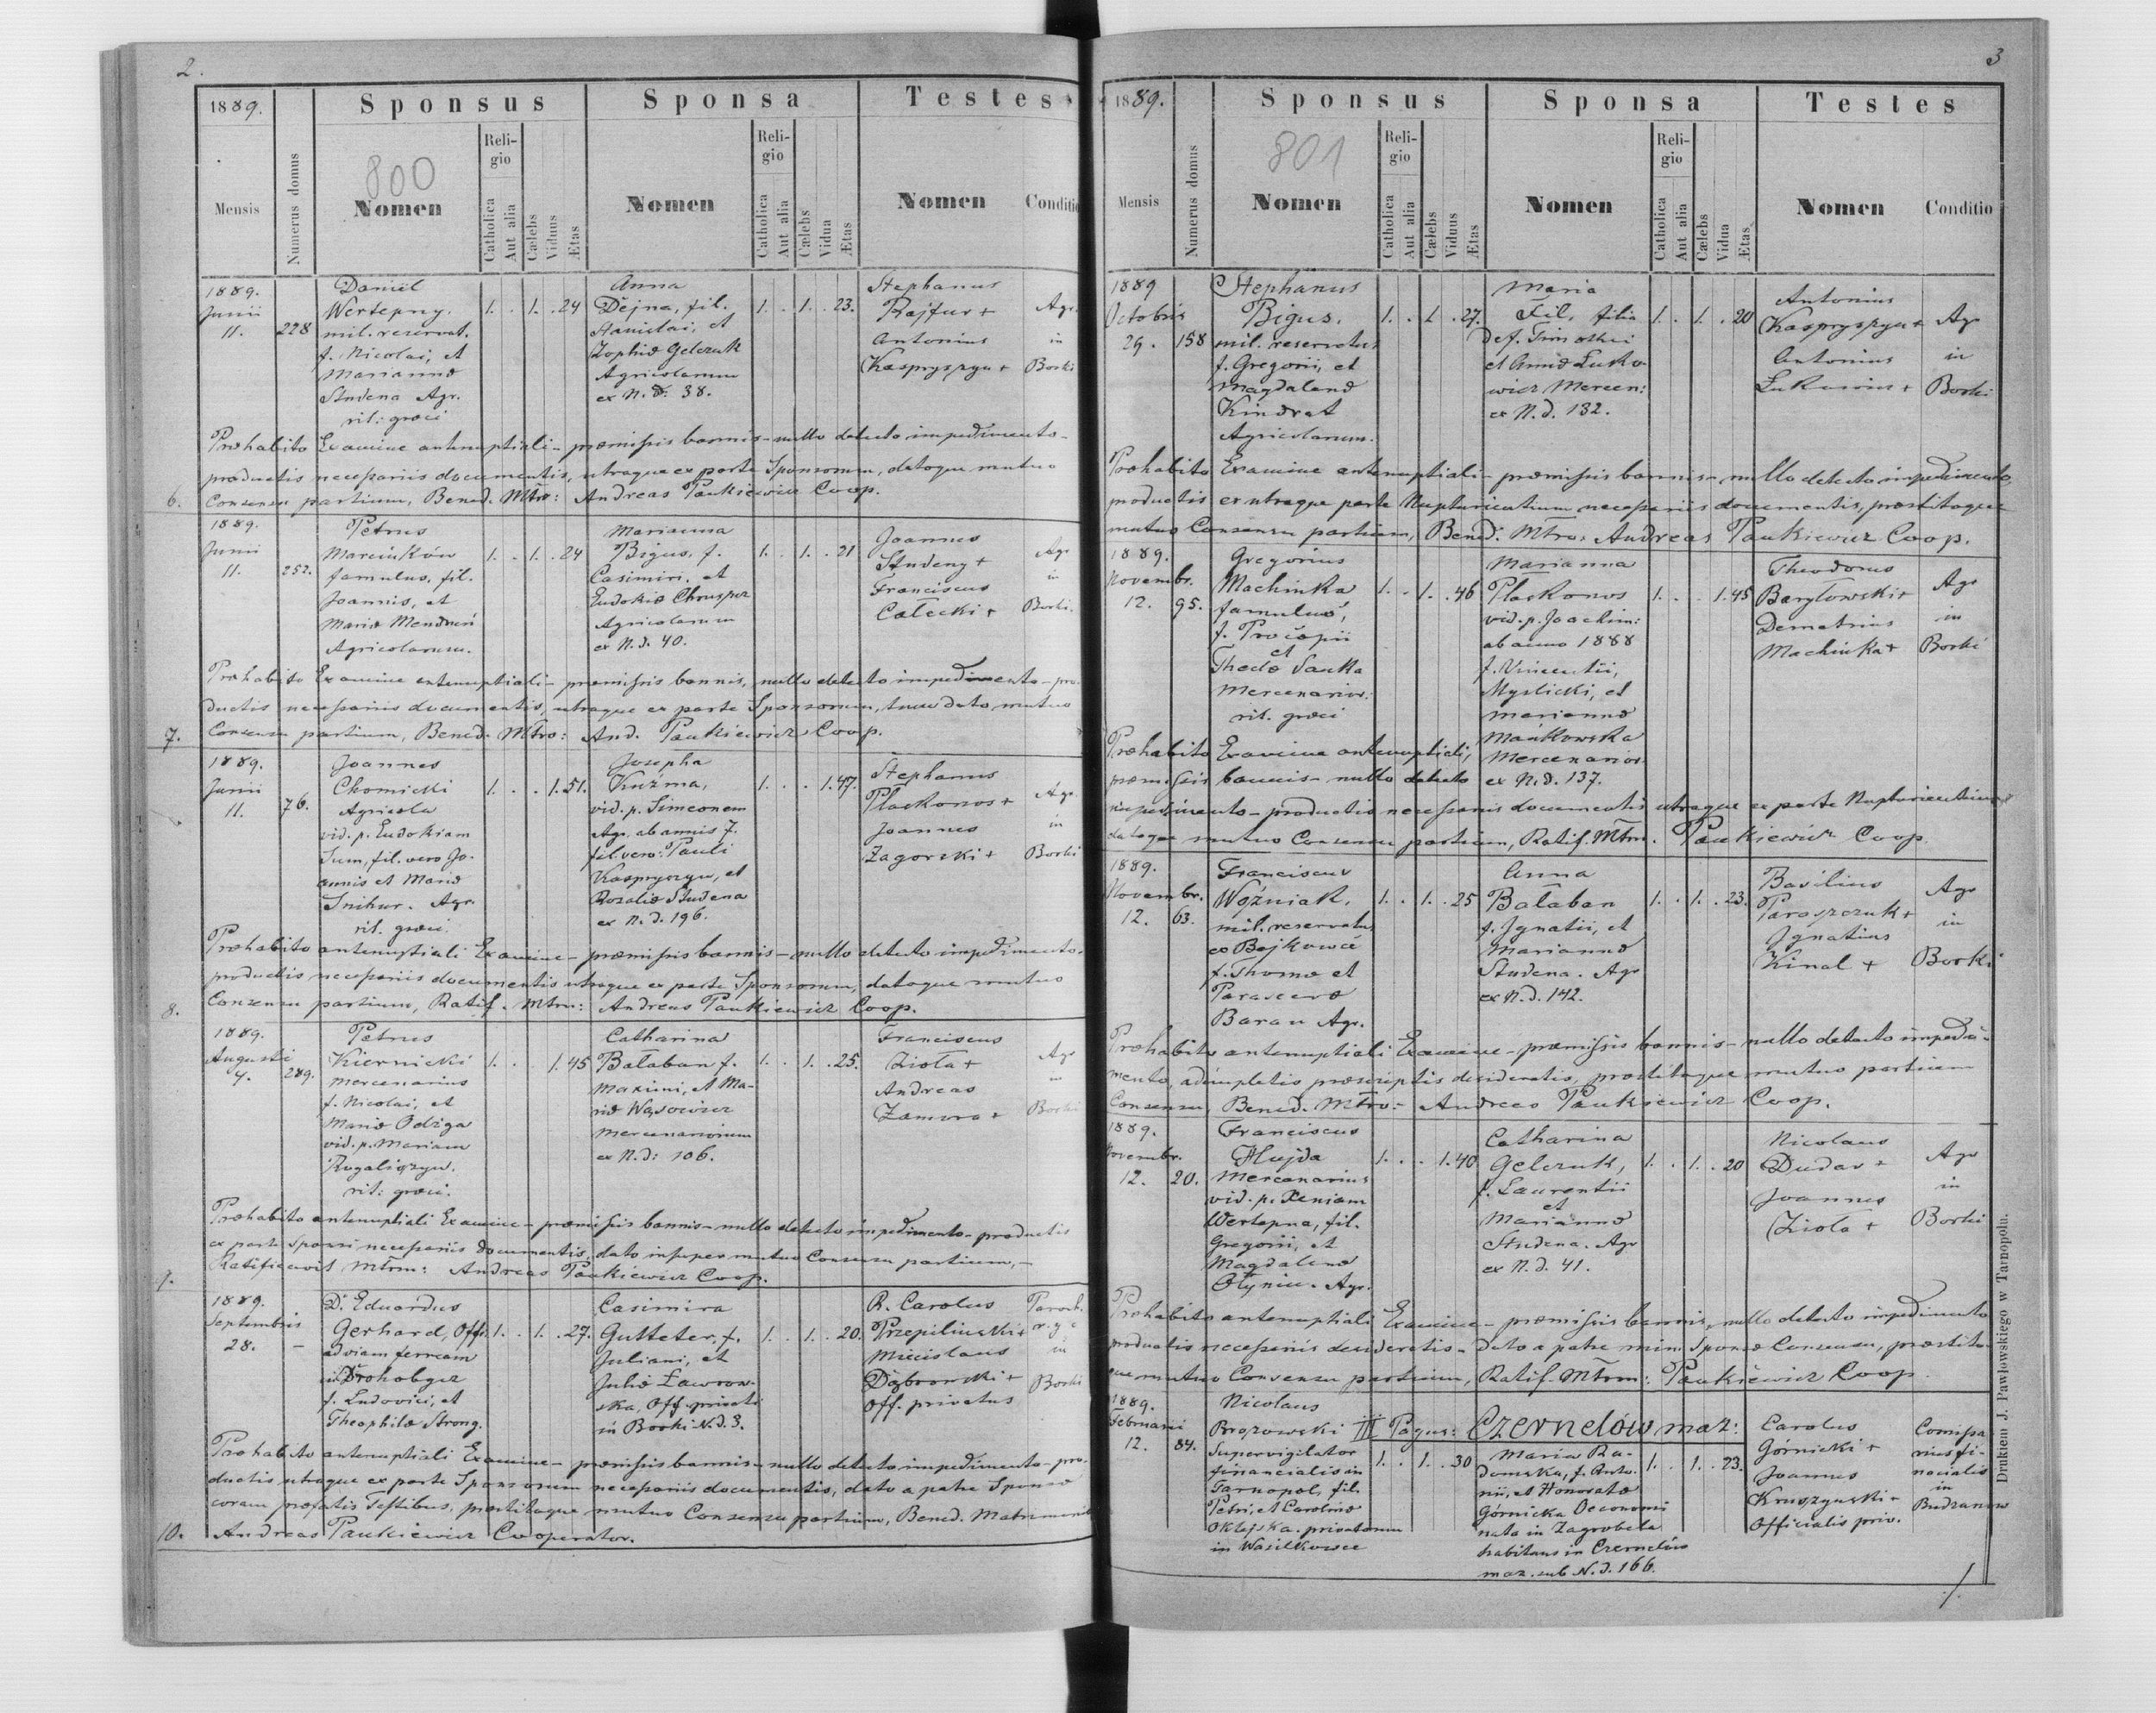 2.
1889.
Sponsus
Sponsa
Testes
Mensis
Numerus domus
800
Nomen
Religio
Catholica
Aut alia
Cælebs
Viduus
Ætas
Nomen
Religio
Catholica
Aut alia
Cælebs
Vidua
Ætas
Nomen
Conditio
1889.
Junii
11.
228
Daniel
Wertepny.
mil. reservat.
f. Nicolai, et
Mariannæ
Studena Agr.
rit: græci
1. . 1. . 24
Anna
Dejna, fil.
Stanislai, et
Zophiæ Gelczuk
Agricolarum
ex N. d. 38.
1. . 1. . 23.
Stephanus
Rajfur +
Antonius
Kaspryszyn +
Agr.
in
Borki
Præhabito Examine antenuptiali - præmissis bannis - nullo detecto impedimento -
productis necessariis documentis, utraque ex parte Sponsorum, datoque mutuo
6. Consensu partium, Bened. Mtro: Andreas Paukiewicz Coop.
1889.
Junii
11.
252.
Petrus
Marcinków
famulus, fil.
Joannis, et
Mariæ
Agricolarum.
1. . 1. . 24
Marianna
Bigus, f.
Casimiri, et
Eudokiæ
Agricolarum
ex N. d. 40.
1. . 1. . 21
Joannes
Studeny +
Franciscus
Całecki +
Agr
in
Borki.
Præhabito Examine antenuptiali - præmissis bannis, nullo detecto impedimento - pro-
ductis necessariis documentis, utraque ex parte Sponsorum, mutuo
7. Consensu partium, Bened. Mtro: And. Paukiewicz Coop.
1889.
Junii
11.
76.
Joannes
Chomicki
Agricola
vid. p. Eudokiam
Sum, fil. vero Jo-
annis et Mariæ
Snihur. Agr.
rit. græci.
1. . . 1. 51.
Josepha
Kuźma,
vid. p. Simeonem
Agr. ab annis 7.
fil. vero: Pauli
Kaspryszyn, et
Rozaliæ Studena
ex N. d. 196.
1. . . 1. 47.
Stephanus
Płaskonos +
Joannes
Zagorski +
Agr.
in
Borki
Præhabito antenuptiali Examine - præmissis bannis - nullo detecto impedimento.
productis necessariis documentis utraque ex parte Sponsorum, datoque mutuo
8. Consensu partium, Ratif. Mtrm: Andreas Paukiewicz Coop.
1889.
Augusti
4.
289.
Petrus
Kiernicki
Mercenarius
f. Nicolai, et
Mariæ Odziga
vid. p. Mariam
Rogaliszyn.
rit: græci.
1. . . 1. 45
Catharina
Bałaban f.
Maximi, et Ma-
riæ Wąsowicz
Mercenariorum
ex N. d: 106.
1. . 1. . 25.
Franciscus
Zioła +
Andreas
Zamora +
Agr
in
Borki
Præhabito antenuptiali Examine - præmissis bannis - nullo detecto impedimento - productis
ex parte Sponsi necessariis documentis, dato insuper mutuo Consensu partium, -
9. Ratificavit Mtrm: Andreas Paukiewicz Coop.
1889.
Septembris
28.
-
D. Eduardus
Gerhard, Off.
ad viam ferream
in Drohobycz
f. Ludovici, et
Theophilæ Strong.
1. . 1. . 27.
Casimira
Gutteter, f.
Juliani, et
Juliæ Ławrow-
ska, Off. privati
in Borki N. d. 3.
1. . 1. . 20.
R. Carolus
Przepiliński +
Miecislaus
Dąbrowski +
Off. privatus
Paroch.
r. g.
in
Borki
Præhabito antenuptiali Examine - præmissis bannis - nullo detecto impedimento - pro-
ductis utraque ex parte Sponsorum necessariis documentis, dato a patre Sponsæ
coram præfatis Testibus, præstitoque mutuo Consensu partium, Bened. Matrimonio
10. Andreas Paukiewicz Cooperator.
3
1889.
Sponsus
Sponsa
Testes
Mensis
Numerus domus
801
Nomen
Religio
Catholica
Aut alia
Cælebs
Viduus
Ætas
Nomen
Religio
Catholica
Aut alia
Cælebs
Vidua
Ætas
Nomen
Conditio
1889
Octobris
29.
158
Stephanus
Bigus.
mil. reservatus
f. Gregorii, et
Magdalenæ
Kindrat
Agricolarum.
1. . 1. . 27.
Maria
Fil, filia
def. Timothei
et Annæ Łuko-
wicz Mercen:
ex N. d. 132.
1. . 1. . 20
Antonius
Kaspryszyn +
Antonius
Łukowicz +
Agr
in
Borki
Præhabito Examine antenuptiali - præmissis bannis - nullo detecto impedimento,
productis ex utraque parte Nupturientium necessariis documentis, præstitoque
mutuo Consensu partium, Bened. Mtro: Andreas Paukiewicz Coop.
1889.
Novembr.
12.
95.
Gregorius
Machinka
famulus,
f. Procopii
et
Theclæ Sanka
Mercenarior.
rit. græci
1. . 1. . 46
Marianna
Płaskonos
vid. p. Joachim:
ab anno 1888
f. Vincentii,
Myslicki, et
Mariannæ
Mańkowska
Mercenarior
ex N. d. 137.
1. . . 1. 45
Theodorus
Baryłowski +
Demetrius
Machinka +
Agr
in
Borki
Præhabito Examine antenuptiali,
præmissis bannis - nullo detecto
impedimento - productis necessariis documentis utraque ex parte Nupturientium
datoque mutuo Consensu partium, Ratif. Mtrm. Paukiewicz Coop
1889.
Novembr.
12.
63.
Franciscus
Woźniak,
mil. reservatus
ex Bajkowce
f. Thomæ et
Parascevæ
Baran Agr.
1. . 1. . 25
Anna
Bałaban
f. Ignatii, et
Mariannæ
Studena. Agr
ex N. d. 142.
1. . 1. . 23.
Basilius
Paraszczuk +
Ignatius
Kinal +
Agr
in
Borki
Præhabito antenuptiali Examine - præmissis bannis - nullo detecto impedi-
mento, adimpletis præscriptis desideratis, præstitoque mutuo partium
Consensu, Bened. Mtro: Andreas Paukiewicz Coop.
1889.
Novembr.
12.
20.
Franciscus
Hujda
Mercenarius
vid. p. Xeniam
Wertepna, fil.
Gregorii, et
Magdalenæ
Ołyniec. Agr.
1. . . 1. 40
Catharina
Gelczuk,
f. Laurentii
et
Mariannæ
Studena. Agr
ex N. d. 41.
1. . 1. . 20
Nicolaus
Dudar +
Joannes
Zioła +
Agr
in
Borki
Præhabito antenuptiali Examine - præmissis bannis, nullo detecto impedimento
productis necessariis desideratis - dato a patre min. Sponsæ Consensu, præstito-
que mutuo Consensu partium, Ratif. Mtrm: Paukiewicz Coop
III Pagus: Czernelów maz:
1889.
Februarii
12.
84.
Nicolaus
Brozowski
Supervigilator
financialis in
Tarnopol, fil.
Petri, et Carolinæ
Oklejska. privatorum
in Wasilkowce
1. . 1. . 30
Maria Ra-
domska, f. Anto-
nii, et Honoratæ
Górnicka Oeconomi
nata in Zagrobela
habitans in Czernelów
maz. sub N. d. 166.
1. . 1. . 23.
Carolus
Górnicki +
Joannes
Kruszyński +
Officialis priv.
Comissa
rius fi-
nacialis
in
Budzanow
Drukiem J. Pawłowskiego w Tarnopolu.